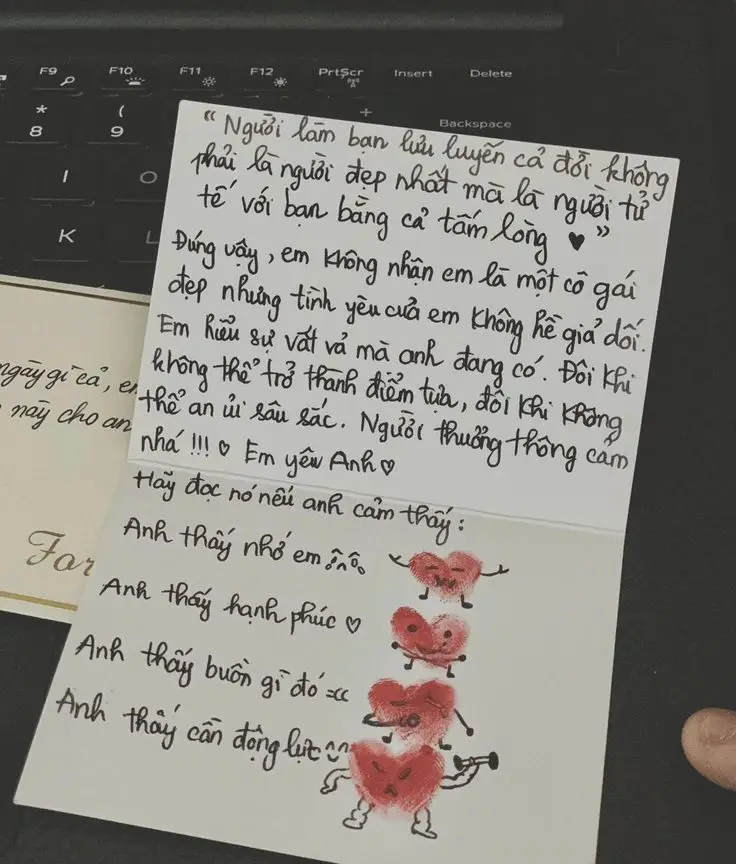 F9 F10 F11 F12 PrtScr Insert Delete
* ( +
8 9 Backspace
I O
K L
“ Người làm bạn lưu luyến cả đời không
phải là người đẹp nhất mà là người tử
tế với bạn bằng cả tấm lòng ♥ ”
Đúng vậy, em không nhận em là một cô gái
đẹp nhưng tình yêu của em không hề giả dối.
Em hiểu sự vất vả mà anh đang có. Đôi khi
không thể trở thành điểm tựa, đôi khi không
thể an ủi sâu sắc. Người thương thông cảm
nhá !!! ♡ Em yêu Anh ♡
Hãy đọc nó nếu anh cảm thấy :
Anh thấy nhớ em
Anh thấy hạnh phúc ♡
Anh thấy buồn gì đó :((
Anh thấy cần động lực ^^
ngày gì cả, em
này cho an
For